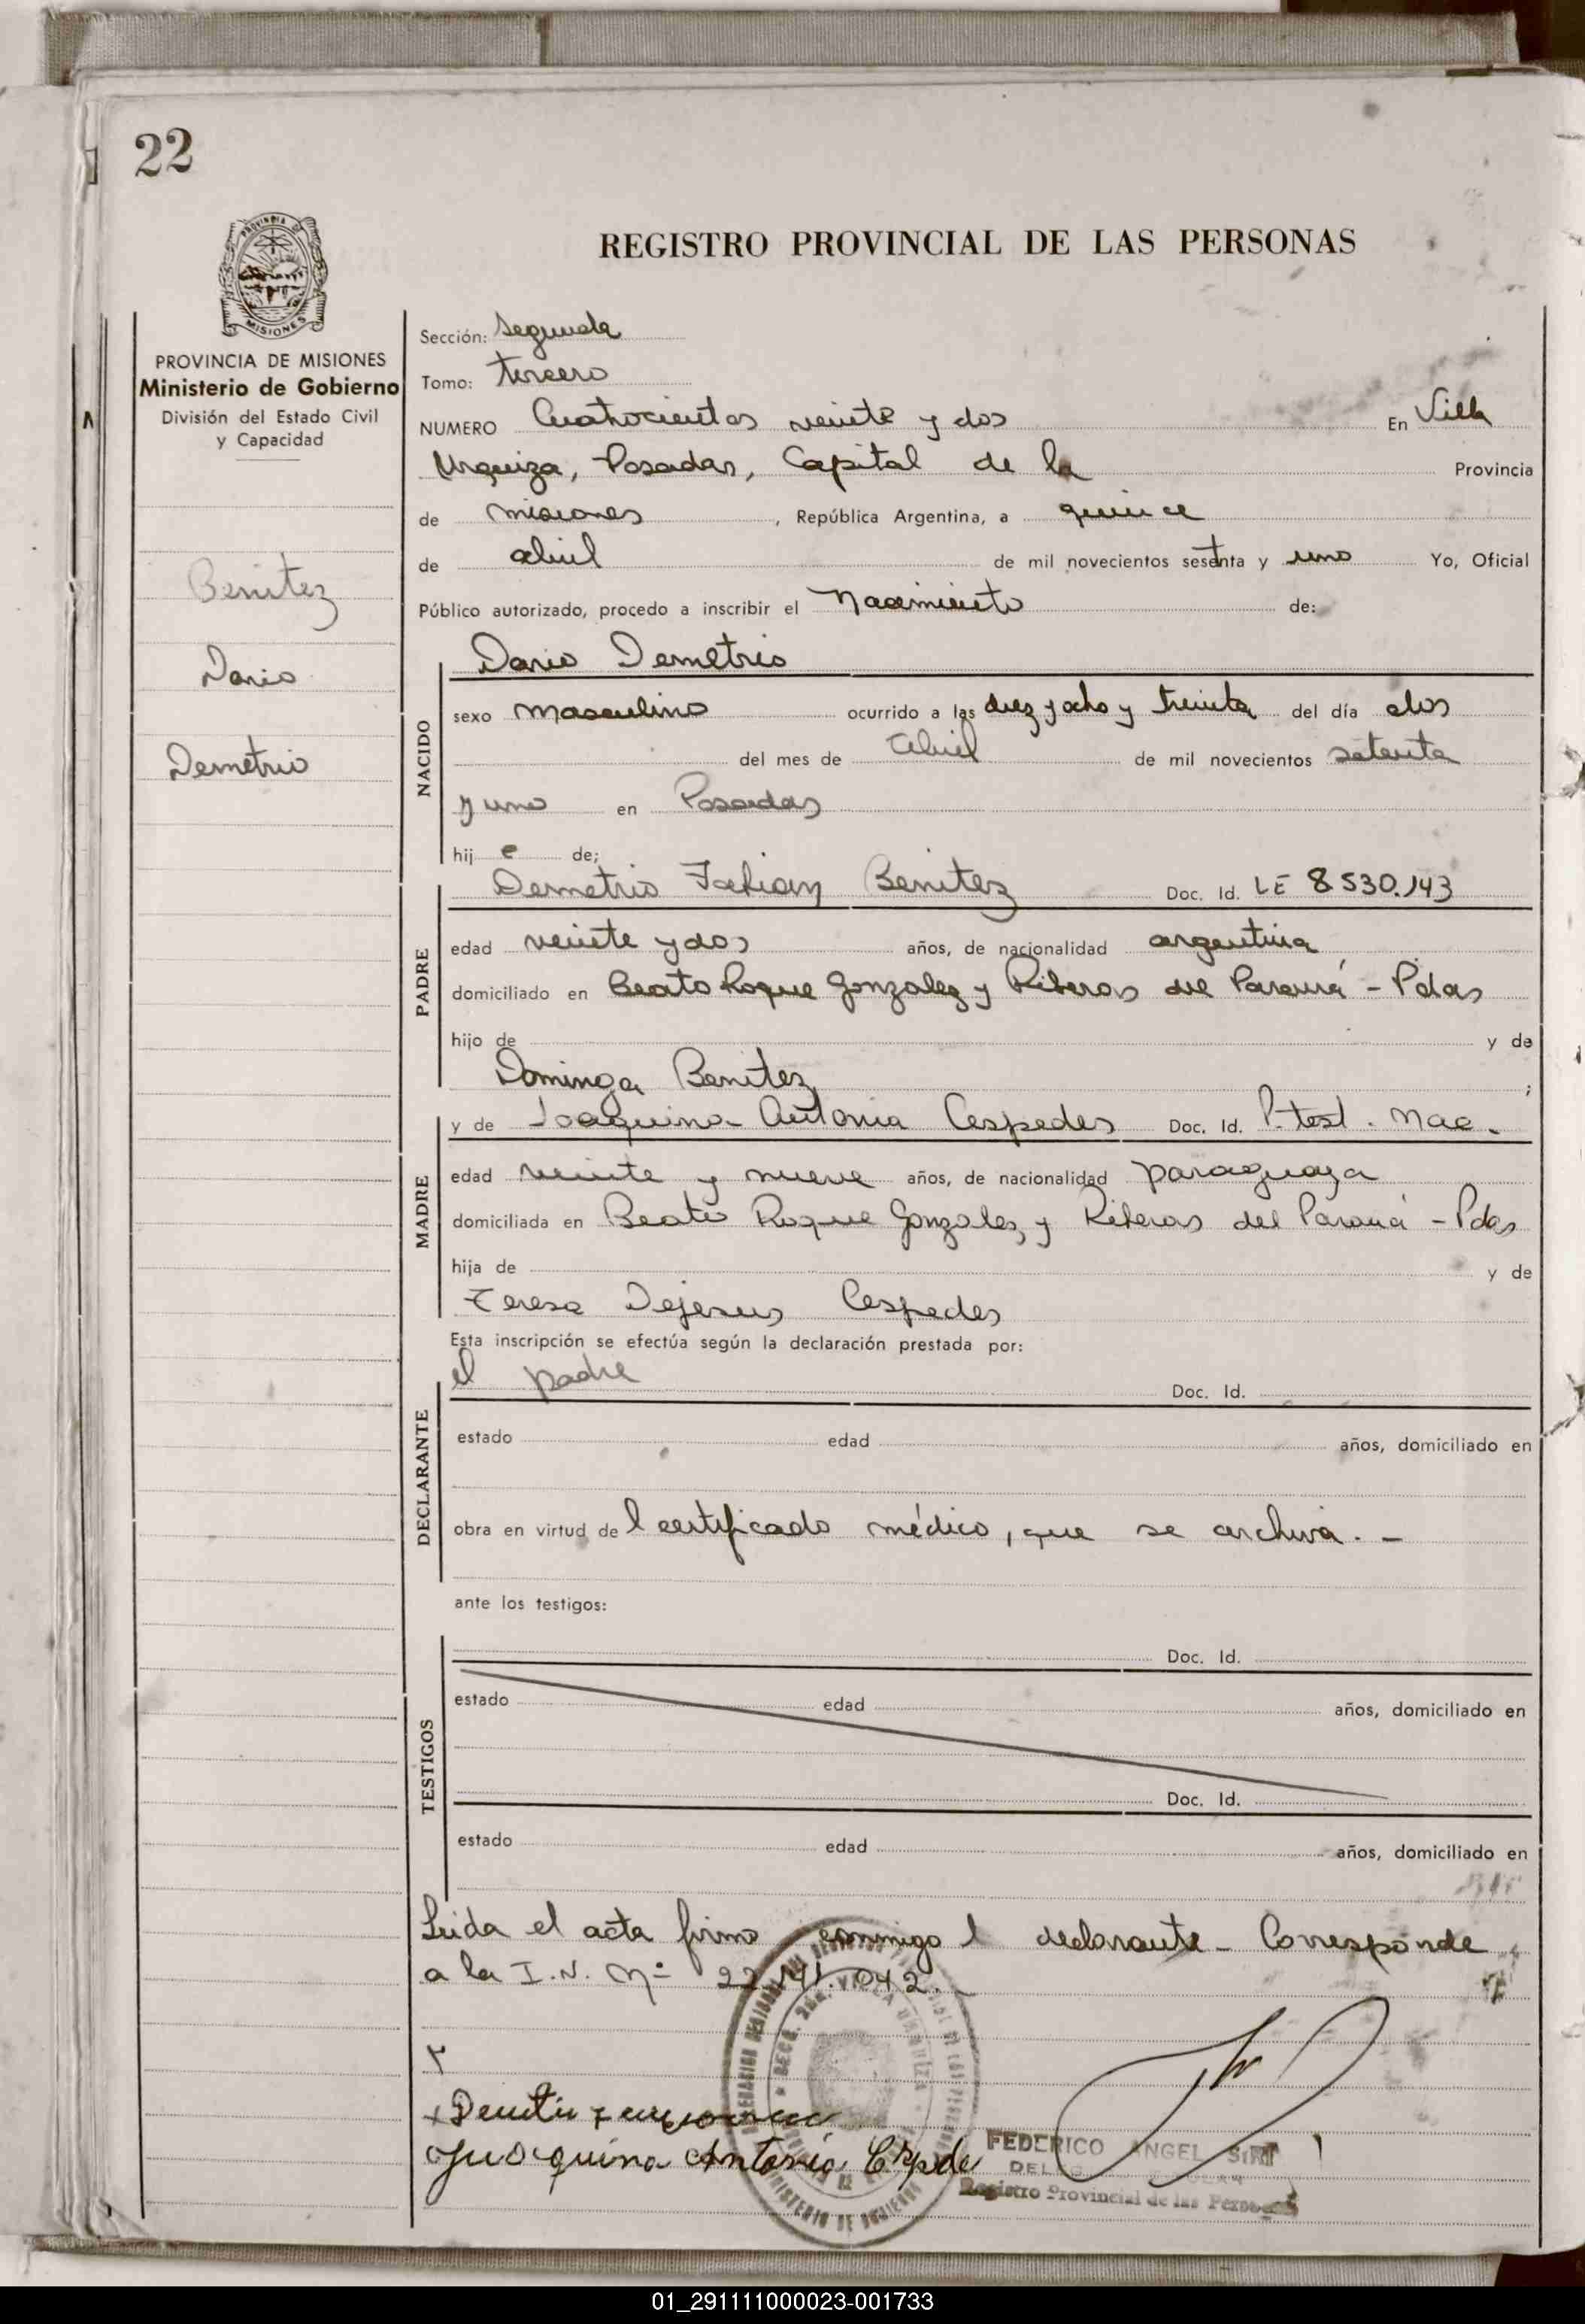 22
REGISTRO PROVINCIAL DE LAS PERSONAS
PROVINCIA DE MISIONES
MISIONES
PROVINCIA DE MISIONES
Ministerio de Gobierno
División del Estado Civil
y Capacidad
Benitez
Dario
Demetrio
Sección: Segunda
Tomo: tercero
NUMERO Cuatrocientos veinte y dos En Villa
Urquiza, Posadas, Capital de la Provincia
de Misiones, República Argentina, a quince
de abril de mil novecientos sesetnta y uno Yo, Oficial
Público autorizado, procedo a inscribir el Nacimiento de:
Dario Demetrio
NACIDO
sexo masculino ocurrido a las diez y ocho y treinta del día dos
del mes de abril de mil novecientos setenta
y uno en Posadas
hij o de;
PADRE
Demetrio Fabian Benitez Doc. Id. LE 8.530.143
edad veinte y dos años, de nacionalidad argentina
domiciliado en Beato Roque Gonzalez y Riberas del Paraná - Pdas
hijo de y de
Dominga Benitez ;
MADRE
y de Joaquina Antonia Cespedes Doc. Id. P. test. Nac.
edad veinte y nueve años, de nacionalidad paraguaya
domiciliada en Beato Roque Gonzalez y Riberas del Paraná - Pdas
hija de y de
Teresa Dejesus Cespedes
Esta inscripción se efectúa según la declaración prestada por:
DECLARANTE
el padre Doc. Id.
estado edad años, domiciliado en
obra en virtud de l certificado médico, que se archiva. -
ante los testigos:
TESTIGOS
Doc. Id.
estado edad años, domiciliado en
Doc. Id.
estado edad años, domiciliado en
Leida el acta firma conmigo l declarante - Corresponde
a la I.N. Nº 22.141.042. -
Juoquina Antonia
FEDERICO ANGEL
Registro Provincial de las
01_291111000023-001733